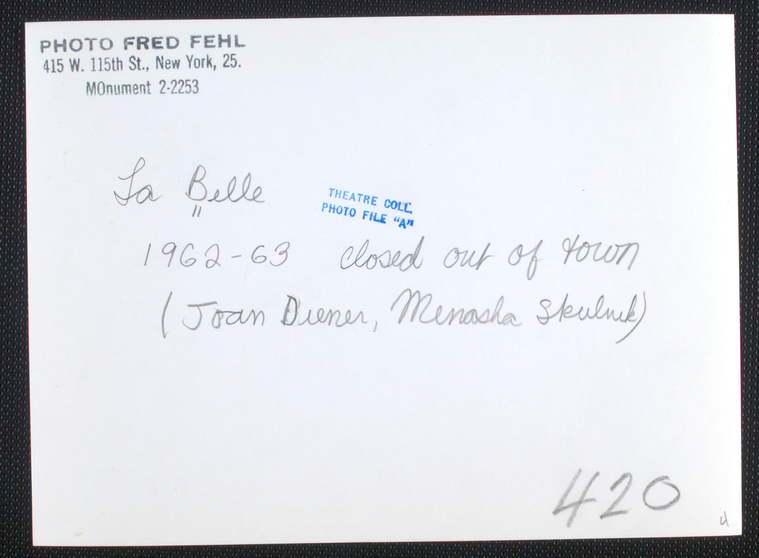 PHOTO FRED FEHL
415 W. 115th St., New York, 25.
MOnument 2-2253
La Belle
"
THEATRE COLL.
PHOTO FILE "A"
1962-63 closed out of town
(Joan Diener, Menasha Skulnik)
420